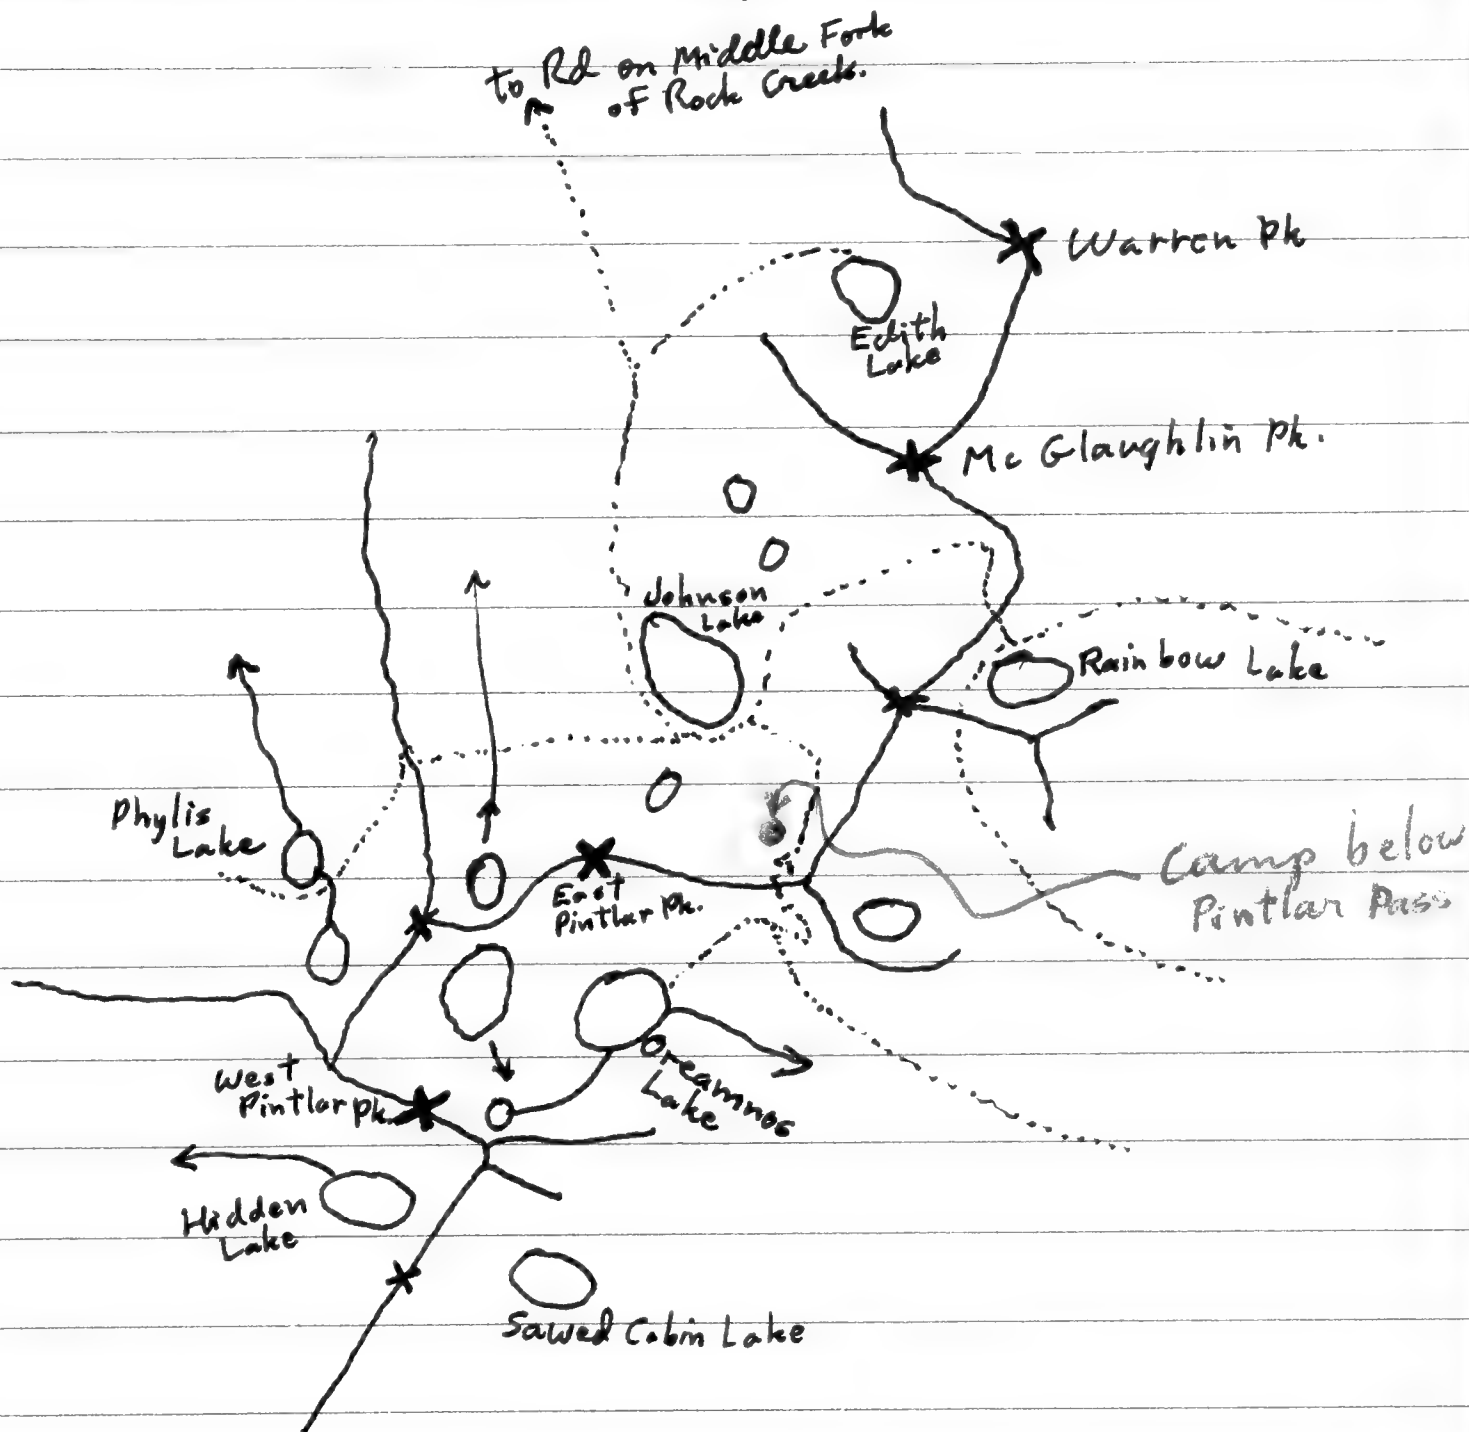 to Rd on Middle Fork
of Rock Creek.
Warren Pk
Edith
Lake
Mc Glaughlin Pk.
Johnson
Lake
Rainbow Lake
Phylis
Lake
Camp below
Pintlar Pass
East
Pintlar Pk.
West
Pintlar Pk.
Oreamnos
Lake
Hidden
Lake
Sawed Cabin Lake